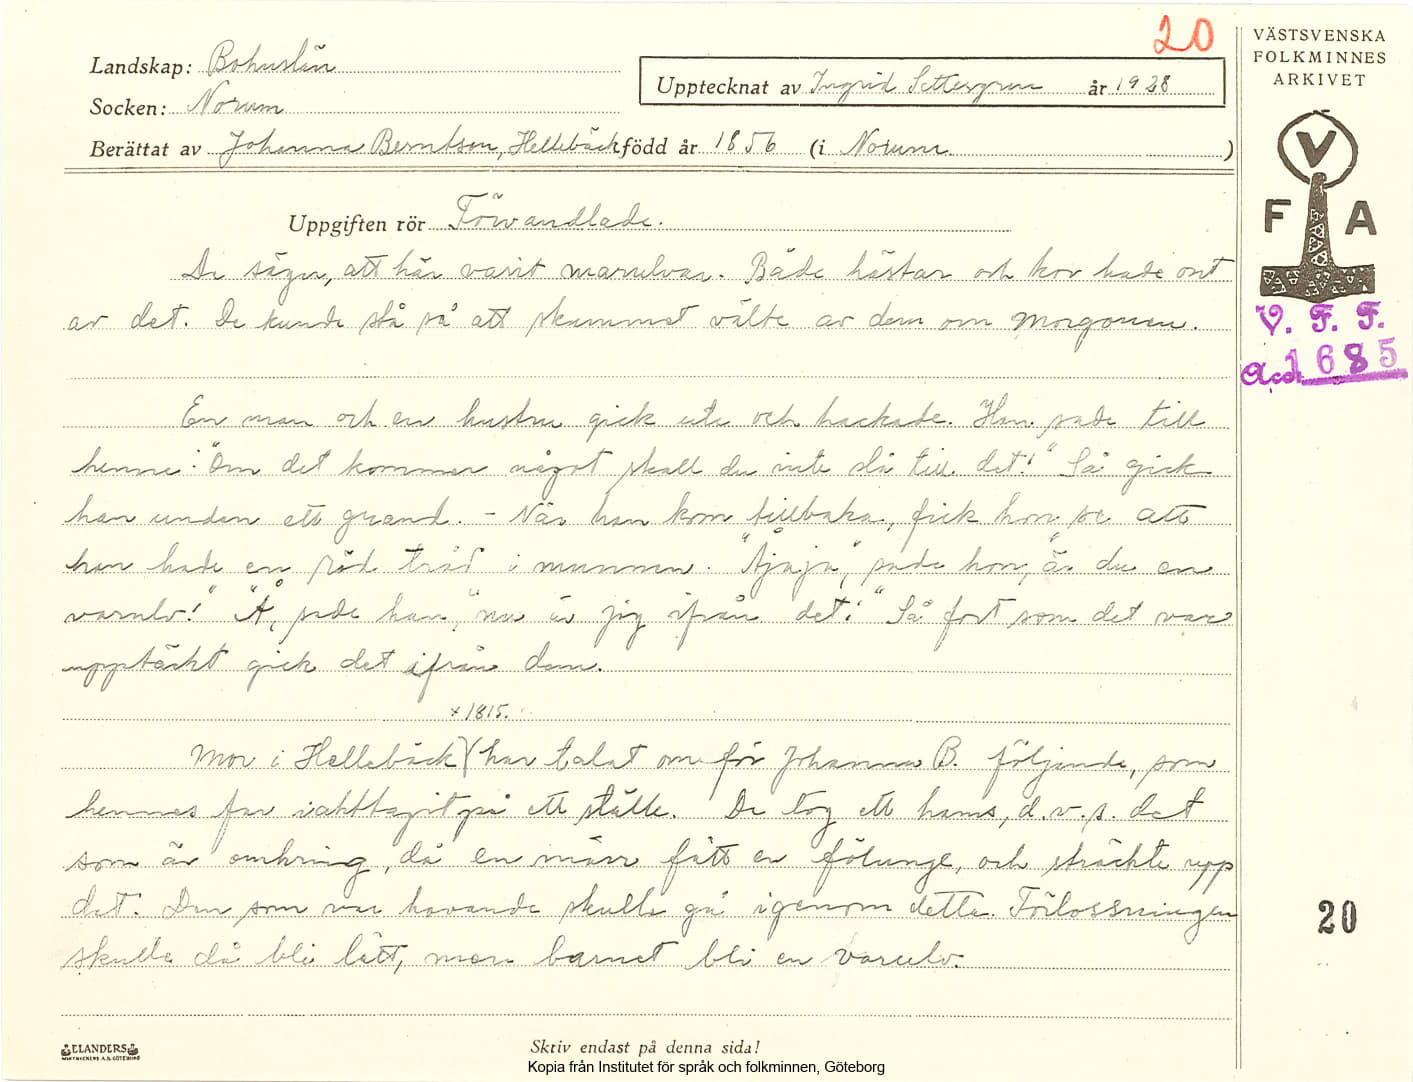 20
VÄSTSVENSKA
FOLKMINNES
ARKIVET
Landskap: Bohuslän
Upptecknat av Ingrid Settergren år 1928
Socken: Norum
Berättat av Johanna Berntson, Hellebäck född år 1856 (i Norum )
V
F A
V. F. F.
Acc. 1685
Uppgiften rör Förvandlade.
De säger, att här varit marulvar. Både hästar och kor hade ont
av det. De kunde stå så att skummet välte av dem om morgonen.
En man och en hustru gick ute och hackade. Han sade till
henne: "Om det kommer något skall du inte slå till det!" Så gick
han undan ett grand. - När han kom tillbaka, fick hon se att
han hade en röd tråd i munnen. "Åjaja," sade hon, "är du en
varulv!" "Å, sade han, "nu är jig ifrån det!" Så fort som det var
upptäckt gick det ifrån dem.
x 1815.
Mor i Hellebäck) har talat om för Johanna B. följande, som
hennes far iakttagit på ett ställe. De tog ett hams, d.v.s. det
som är omkring, då en märr fått en fölunge, och sträckte upp
det. Den som var havande skulle gå igenom detta. Förlossningen
skulle då bli lätt, men barnet bli en varulv.
20
ELANDERS
Skriv endast på denna sida!
Kopia från Institutet för språk och folkminnen, Göteborg